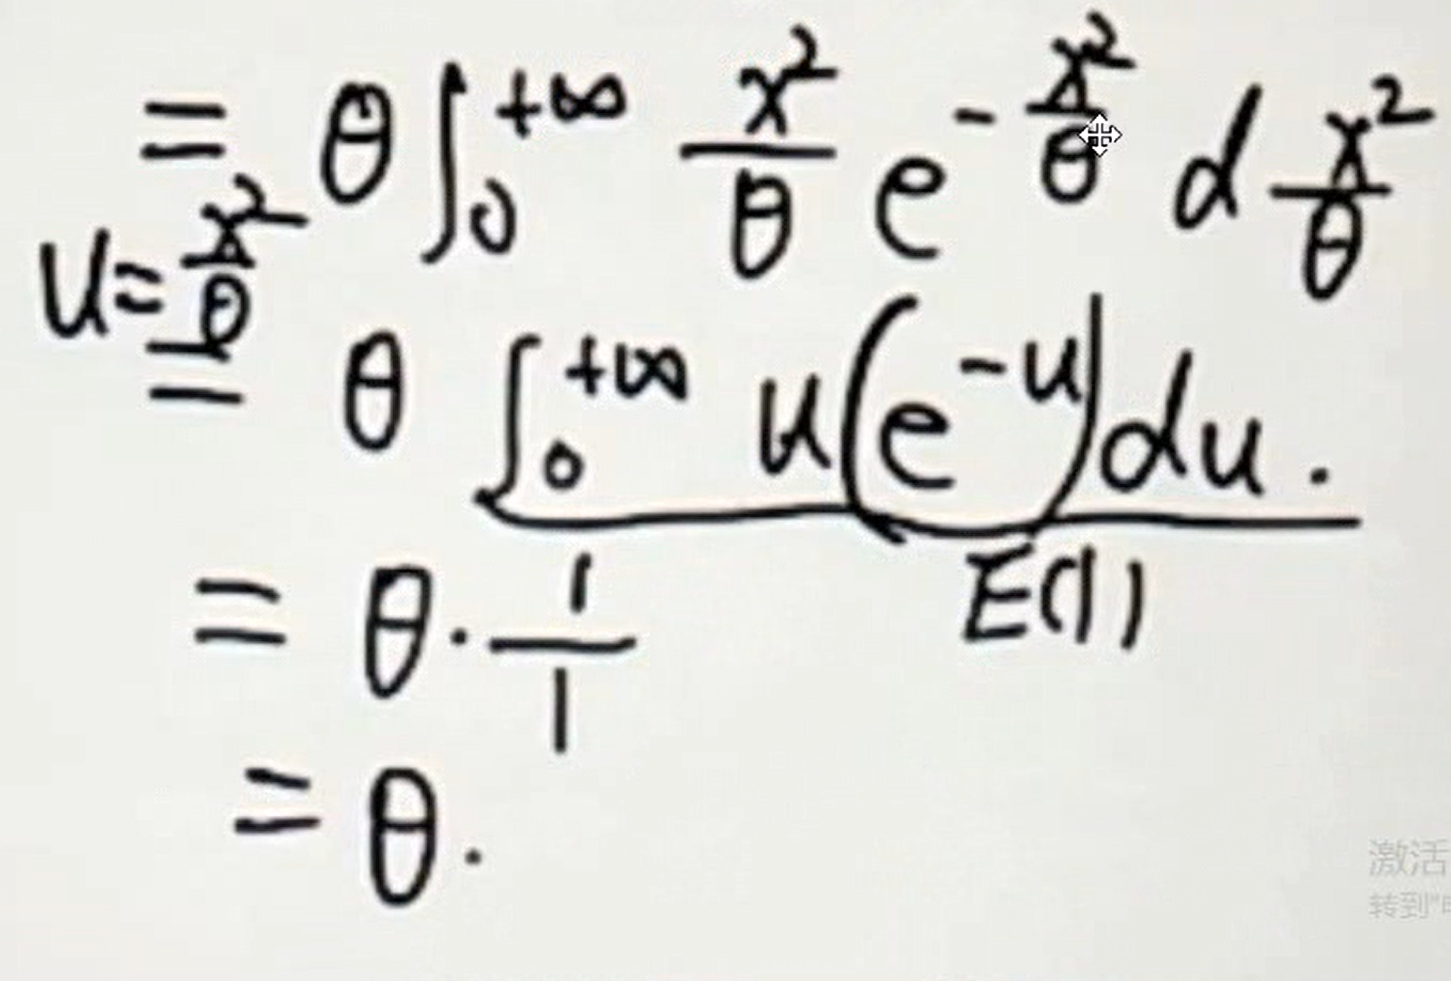 = θ∫₀^{+∞} x²/θ e^{-x²/θ} d x²/θ
u = x²/θ
= θ ∫₀^{+∞} u(e^{-u})du.
E(1)
= θ · 1/1
= θ.
激活
转到"